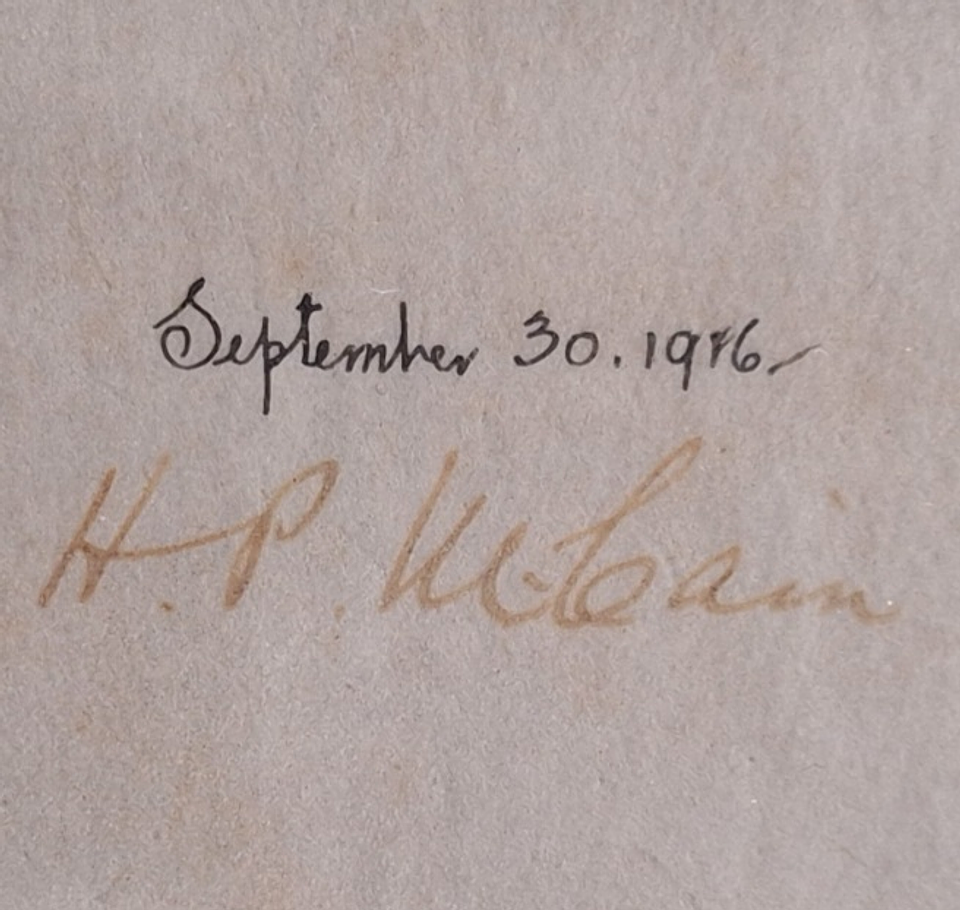 September 30. 1916.
H. P. McCain